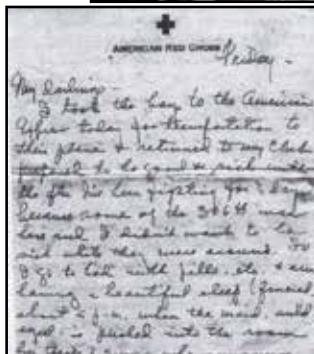 AMERICAN RED CROSS
Friday -
My Darling -
I took the bag to the American
Officer today for transportation to
their place & returned to my Club
prepared to be good & sick under
the I've been fighting for days
because some of the 306th men
here and I didn't want to be
sick while they were around. So
I go to bed with pills, etc. & am
having a beautiful sleep
about 5 p.m. when the maid, wild
eyed is pushed into the room
by